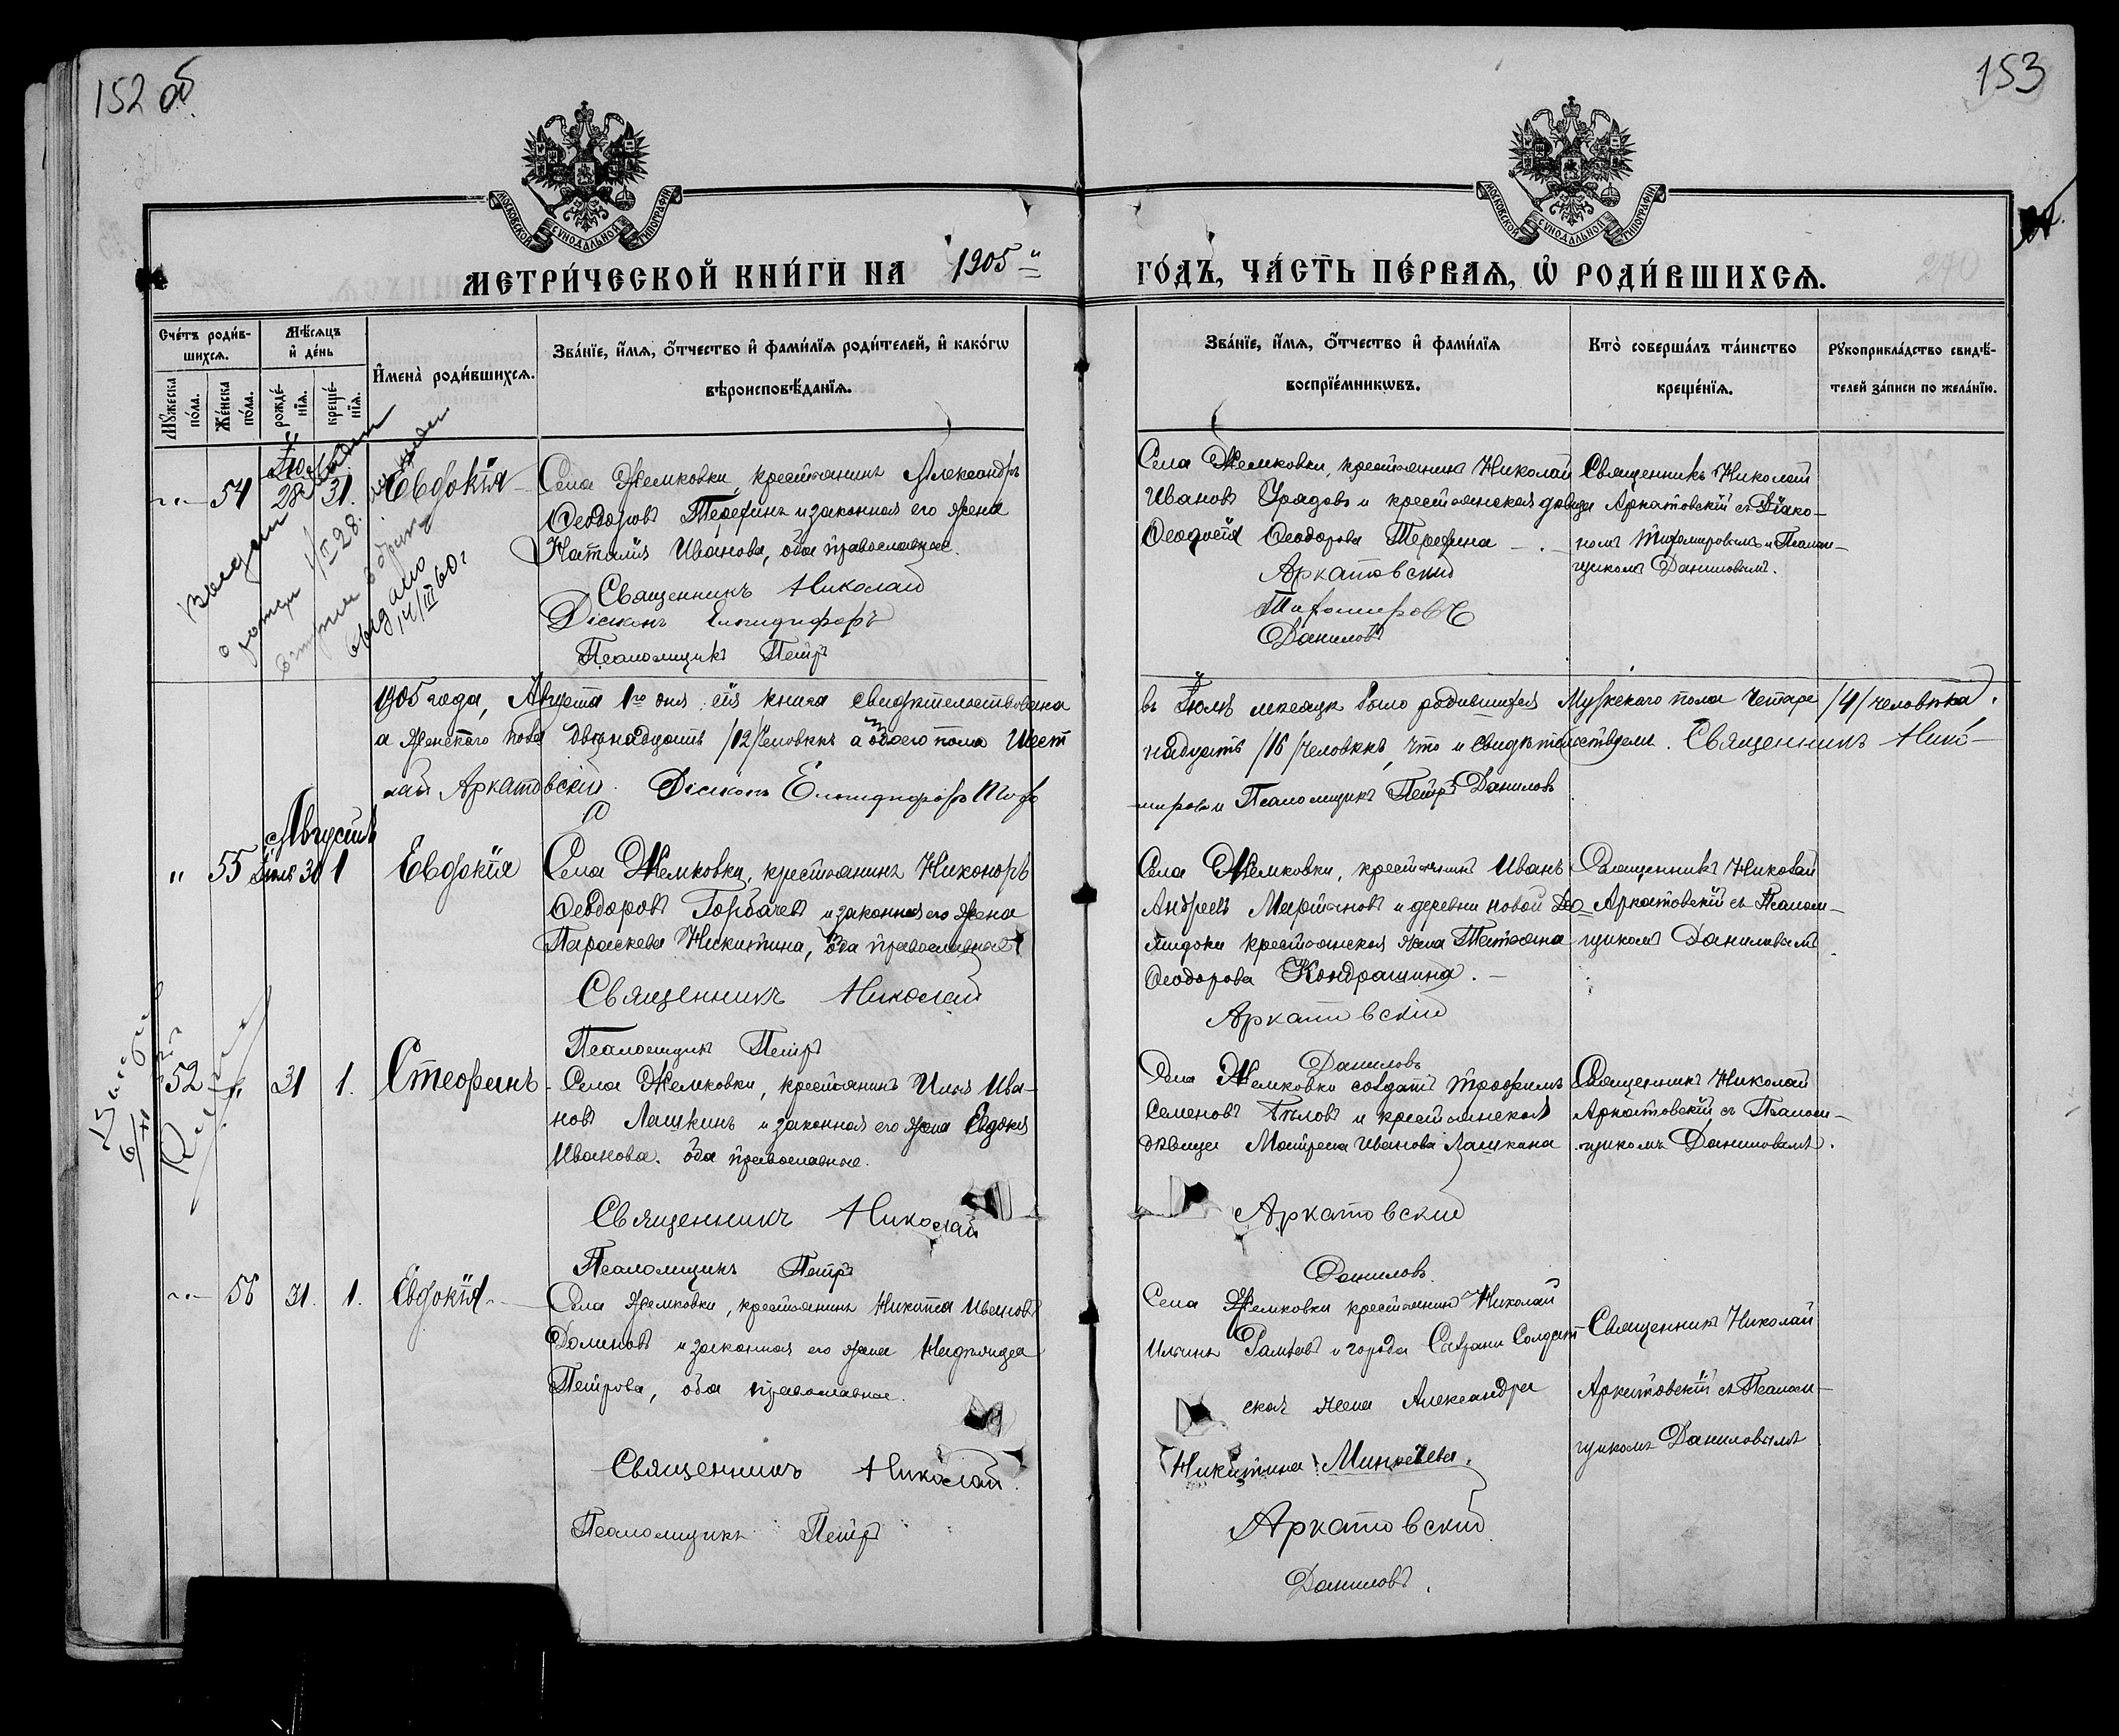 152 об.
153
МОСКОВСКОЙ СѴНОДАЛЬНОЙ ТИПОГРАФІИ
МОСКОВСКОЙ СѴНОДАЛЬНОЙ ТИПОГРАФІИ
МЕТРИ́ЧЕСКОЙ КНИ́ГИ НА 1905 й ГО́ДЪ, ЧА́СТЬ ПЕ́РВАѦ, Ѡ҆ РОДИ́ВШИХСѦ.
270
Сче́тъ роди́в-
шихсѧ.
Мꙋ́жеска по́ла.
Же́нска по́ла.
Мѣ́сѧцъ
и҆ де́нь
рожде́-
нїѧ.
креще́-
нїѧ.
И҆мена̀ роди́вшихсѧ.
Зва́нїе, и҆́мѧ, ѻ҆́тчество и҆ фами́лїѧ роди́телей, и҆ како́гѡ
вѣроисповѣ́данїѧ.
Зва́нїе, и҆́мѧ, ѻ҆́тчество и҆ фами́лїѧ
воспрїе́мникѡвъ.
Кто̀ соверша́лъ та́инство
креще́нїѧ.
Рꙋкоприкла́дство свидѣ́-
телей за́писи по жела́нїю.
54 28. 31. Евдокія
Села Жемковки, крестьянинъ Александръ
Ѳеодоровъ Терехинъ и законная его жена
Наталія Иванова, оба православные.
Священникъ Николай
Діаконъ Елпидифоръ
Псаломщикъ Петръ
Села Жемковки, крестьянинъ Николай
Ивановъ Урядовъ и крестьянская девица
Ѳеодосія Ѳеодорова Терехина
Аркатовскій
Тихомировъ
Даниловъ
Священникъ Николай
Аркатовскій съ Діако-
номъ Тихомировымъ и Псалом-
щикомъ Даниловымъ.
Выдан
выдано
14/III 60 г
1905 года, Августа 1го дня сія книга свидѣтельствована
въ Іюлѣ месяцѣ было родившихся Мужескаго пола четыре /4/ человѣка,
а Женскаго пола двѣнадцать /12/ человѣкъ а обоего пола Шест
надцать /16/ человѣкъ, что и свидѣтельствуемъ. Священникъ Нико-
лай Аркатовскій. Діаконъ Елпидифоръ Тихо
мировъ и Псаломщикъ Петръ Даниловъ
Августъ
" 55 Іюль 30 1 Евдокія
Села Жемковки, крестьянинъ Никоноръ
Ѳеодоровъ Горбачевъ и законная его жена
Параскева Никитина, оба православные
Священникъ Николай
Псаломщикъ Петръ
Села Жемковки, крестьянинъ Иванъ
Андреевъ Мартьяновъ и деревни новой
крестьянская жена Татьяна
Ѳеодорова Кондрашина.
Аркатовскій
Даниловъ
Священникъ Николай
Аркатовскій съ Псалом-
щикомъ Даниловымъ
52 " 31 1. Стефанъ
6/XI
Села Жемковки, крестьянинъ Илья Ива-
новъ Лашкинъ и законная его жена Евдокія
Иванова. оба православные.
Священникъ Николай
Псаломщикъ Петръ
Села Жемковки солдатъ Трофимъ
Семеновъ Бѣловъ и крестьянская
дѣвица Матрена Иванова Лашкина
Аркатовскій
Даниловъ.
Священникъ Николай
Аркатовскій съ Псалом-
щикомъ Даниловымъ.
56 31. 1. Евдокія
Села Жемковки, крестьянинъ Никита Ивановъ
Доминовъ и законная его жена Надежда
Петрова, оба православные.
Священникъ Николай.
Псаломщикъ Петръ
Села Жемковки крестьянинъ Николай
Ильинъ и города Сызрани Солдат
ская жена Александра
Никитина
Аркатовскій
Даниловъ.
Священникъ Николай
Аркатовскій съ Псалом-
щикомъ Даниловымъ